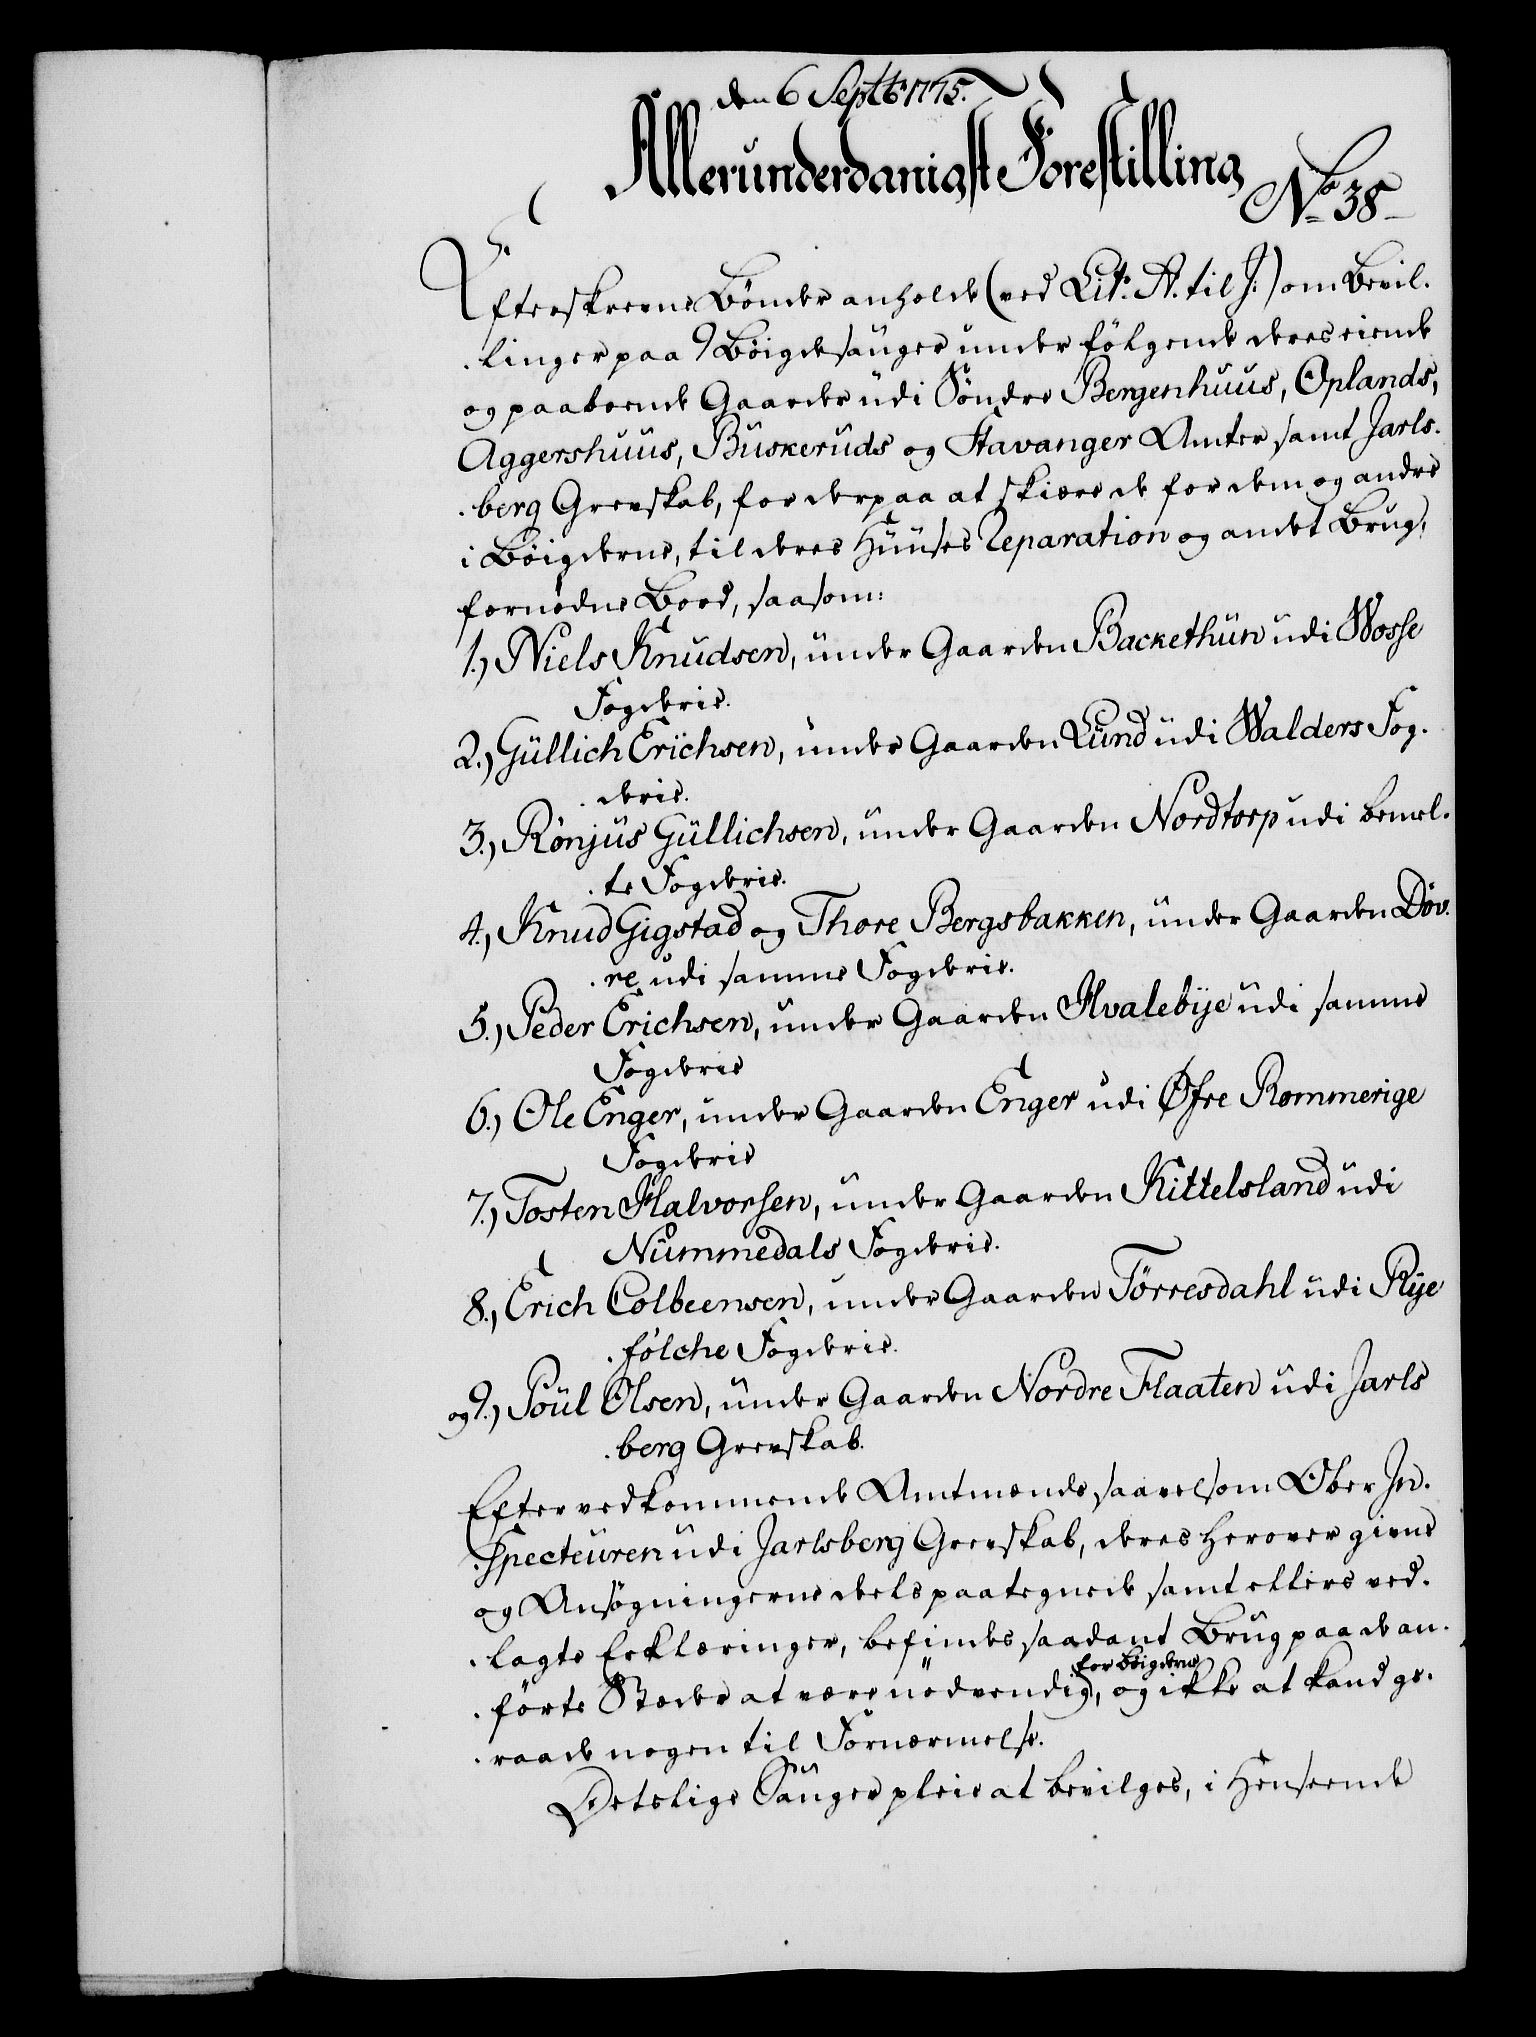 den 6 Septbr 1775.
Allerunderdanigst Forestilling
No 38
Efterskrevne Bönder anholde (ved Litr. A. til J.) om Bevil-
linger paa 9 Böigdesauger under fölgende deres eiende
og paaboende Gaarder udi Söndre Bergenhuus, Oplands,
Aggershuus, Buskeruds og Stavanger Amter samt Jarls-
berg Grevskab, for derpaa at skiære de for dem og andre
i Böigderne, til deres Huuses Reparation og andet Brug,
fornødne Bord, saasom:
1.) Niels Knudsen, under Gaarden Backethun udi Wosse
Fogderie.
2.) Güllich Erichsen, under Gaarden Lund udi Walders Fog-
derie.
3.) Rönjus Güllichsen, under Gaarden Nordtorp udi bemel-
te Fogderie.
4.) Knud Gigstad og Thore Bergsbakken, under Gaarden Döv-
re udi samme Fogderie.
5.) Peder Erichsen, under Gaarden Hvalebÿe udi samme
Fogderie
6.) Ole Enger, under Gaarden Enger udi Øfre Rommerige
Fogderie
7.) Tosten Halvorsen, under Gaarden Kittelsland udi
Nummedals Fogderie.
8.) Erich Colbeensen, under Gaarden Törresdahl udi Rÿe
fölche Fogderie.
og 9.) Poül Olsen, under Gaarden Nordre Flaaten udi Jarls
berg Grevskab.
Efter vedkommende Amtmænds saavelsom Ober In-
specteuren udi Jarlsberg Grevskab, deres herover givne
og Ansögningerne dels paategnede samt ellers ved-
lagte Erklæringer, befindes saadant Brug paa de an-
for Böigderne
förte Stæder at være nödvendig, og ikke at kand ge-
raade nogen til Fornærmelse.
Detslige Sauger pleie at bevilges, i Henseende